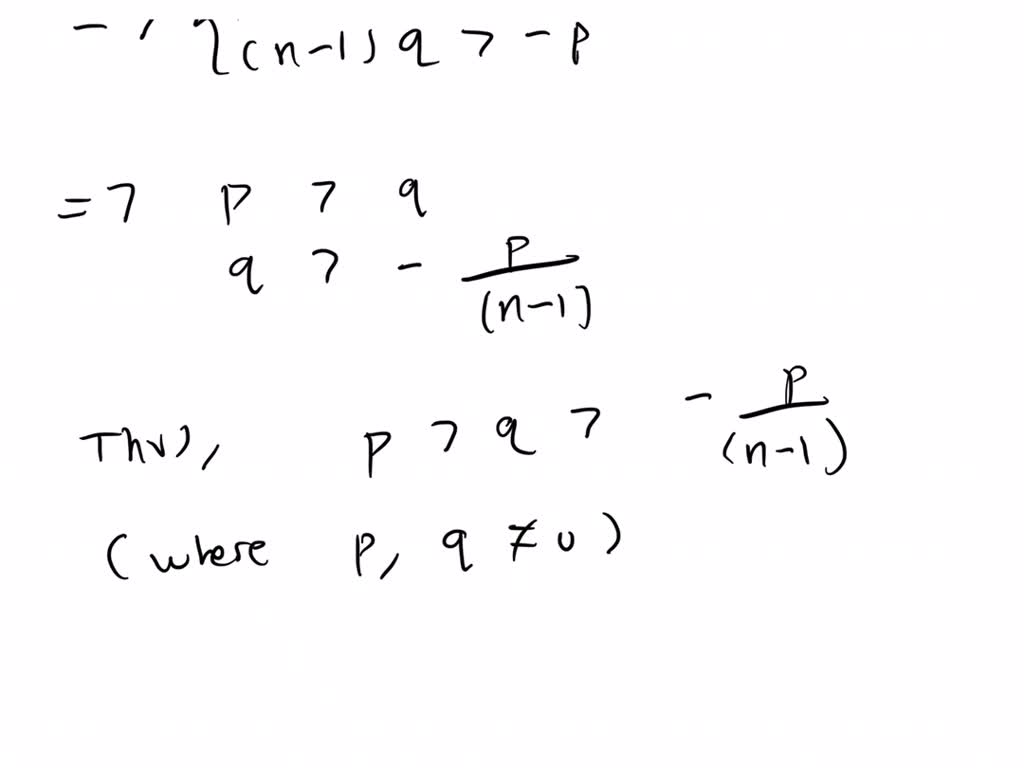 {(n-1) q > -p
=> p > q
q > - p/(n-1)
Thus, p > q > - p/(n-1)
(where p, q ≠ 0)